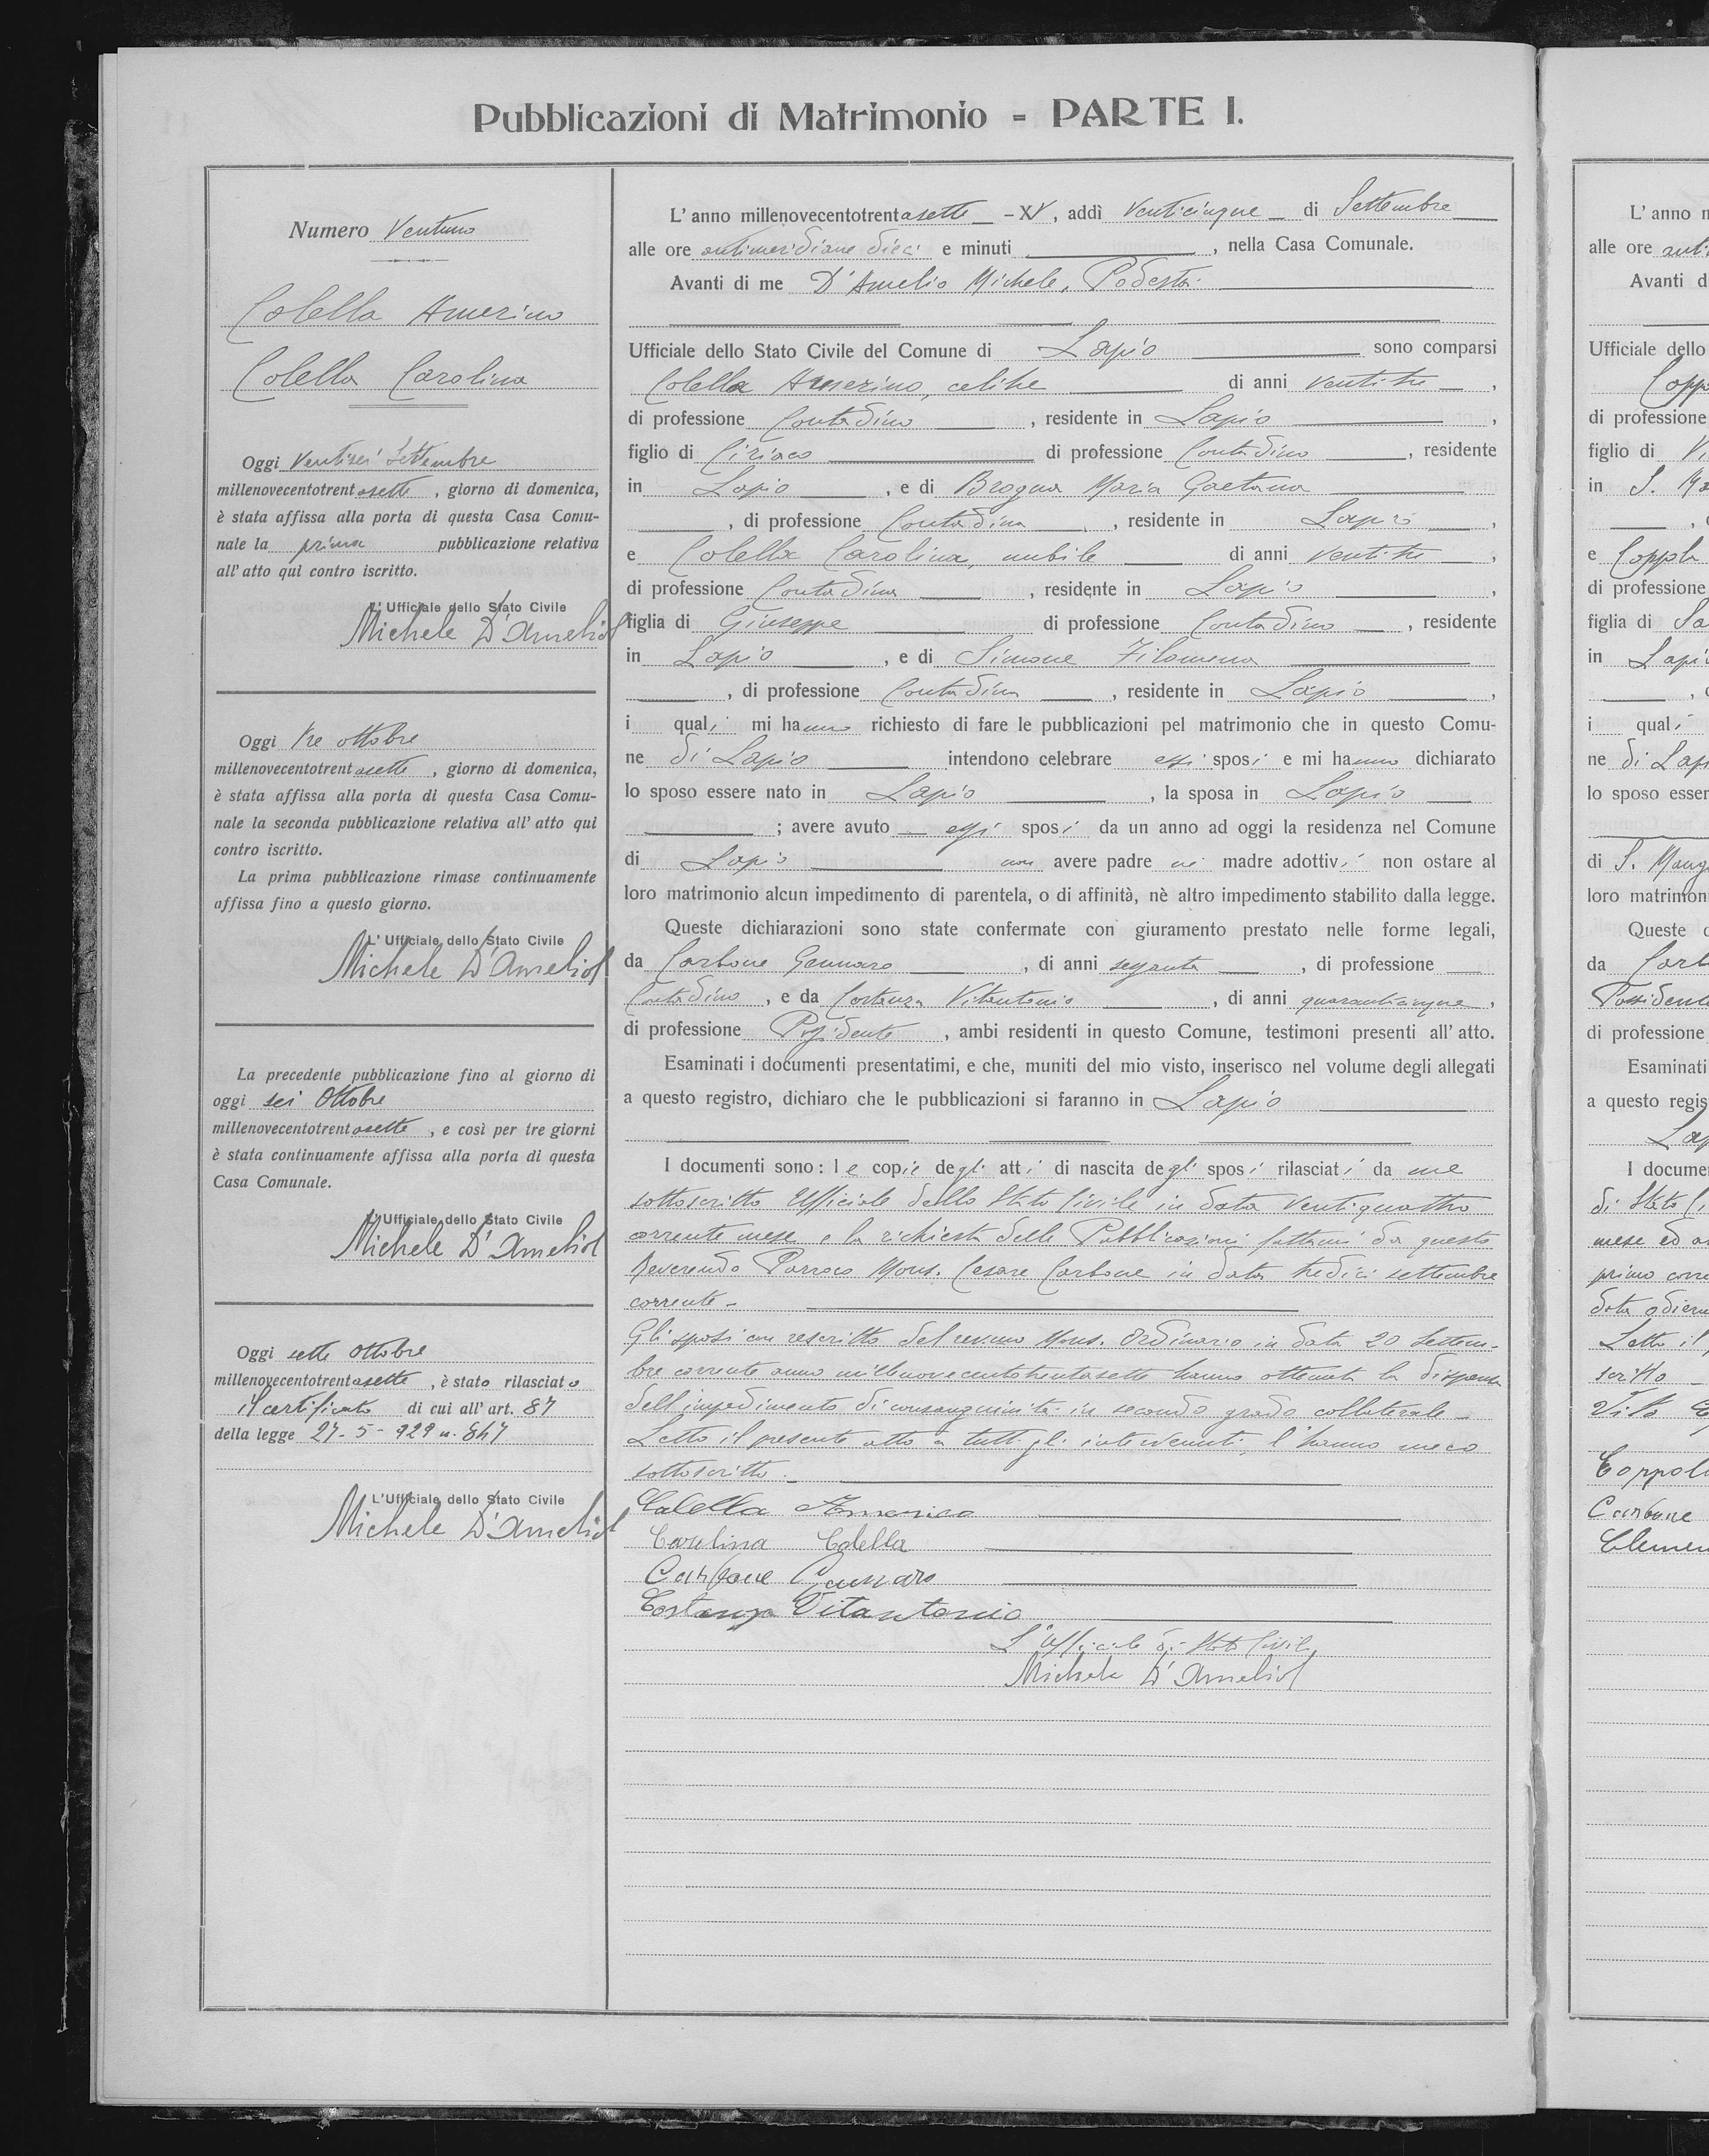 Pubblicazioni di Matrimonio - PARTE I.
Numero Ventuno
Colella Amerino
Colella Carolina
Oggi Ventisei Settembre
millenovecentotrentasette, giorno di domenica,
è stata affissa alla porta di questa Casa Comu-
nale la prima pubblicazione relativa
all' atto qui contro iscritto.
L' Ufficiale dello Stato Civile
Michele D'Amelio
Oggi tre ottobre
millenovecentotrentasette, giorno di domenica,
è stata affissa alla porta di questa Casa Comu-
nale la seconda pubblicazione relativa all' atto qui
contro iscritto.
La prima pubblicazione rimase continuamente
affissa fino a questo giorno.
L' Ufficiale dello Stato Civile
Michele D'Amelio
La precedente pubblicazione fino al giorno di
oggi sei Ottobre
millenovecentotrentasette, e così per tre giorni
è stata continuamente affissa alla porta di questa
Casa Comunale.
L' Ufficiale dello Stato Civile
Michele D'Amelio
Oggi sette Ottobre
millenovecentotrentasette, è stato rilasciato
il certificato di cui all' art. 87
della legge 27-5-929 n. 847
L'Ufficiale dello Stato Civile
Michele D'Amelio
L' anno millenovecentotrentasette - XV, addì Venticinque di Settembre
alle ore antimeridiane dieci e minuti , nella Casa Comunale.
Avanti di me D'Amelio Michele, Podestà
Ufficiale dello Stato Civile del Comune di Lapio sono comparsi
Colella Amerino, celibe di anni ventitre,
di professione Contadino, residente in Lapio,
figlio di Ciriaco di professione Contadino, residente
in Lapio, e di Brogna Maria Gaetana
, di professione Contadina, residente in Lapio,
e Colella Carolina, nubile di anni ventitre,
di professione Contadina, residente in Lapio,
figlia di Giuseppe di professione Contadino, residente
in Lapio, e di Simone Filomena
, di professione Contadina, residente in Lapio,
i quali mi hanno richiesto di fare le pubblicazioni pel matrimonio che in questo Comu-
ne di Lapio intendono celebrare essi sposi e mi hanno dichiarato
lo sposo essere nato in Lapio, la sposa in Lapio
; avere avuto essi sposi da un anno ad oggi la residenza nel Comune
di Lapio non avere padre nè madre adottivi non ostare al
loro matrimonio alcun impedimento di parentela, o di affinità, nè altro impedimento stabilito dalla legge.
Queste dichiarazioni sono state confermate con giuramento prestato nelle forme legali,
da Carbone Gennaro, di anni sessanta, di professione
Contadino, e da Costanza Vitantonio, di anni quarantacinque,
di professione Possidente, ambi residenti in questo Comune, testimoni presenti all' atto.
Esaminati i documenti presentatimi, e che, muniti del mio visto, inserisco nel volume degli allegati
a questo registro, dichiaro che le pubblicazioni si faranno in Lapio
I documenti sono: le copie degli atti di nascita degli sposi rilasciati da me
sottoscritto Ufficiale dello Stato Civile in data ventiquattro
corrente mese e la richiesta delle Pubblicazioni fattami da questo
Reverendo Parroco Mons. Cesare Carbone in data tredici settembre
corrente -
Gli sposi con rescritto del rev.mo Mons. Ordinario in data 20 Settem-
bre corrente anno millenovecentotrentasette hanno ottenuta la dispensa
dell'impedimento di consanguinità in secondo grado collaterale -
Letto il presente atto a tutti gli intervenuti, l'hanno meco
sottoscritto -
Colella Americo
Carolina Colella
Carbone Gennaro
Costanza Vitantonio
L'Ufficiale di Stato Civile
Michele D'Amelio
L' anno m
alle ore anti
Avanti d
Ufficiale dello
Copp
di professione
figlio di Vi
in S. Ma
e Coppola
di professione
figlia di Sa
in Lapi
i quali
ne di Lap
lo sposo esser
di S. Mang
loro matrimon
Queste d
da Carb
Possidente
di professione
Esaminati
a questo regis
Lap
I docume
di Stato Ci
mese ed a
primo corre
data odiern
Letto il
scritto
Vito
Coppol
Carbone
Clemen